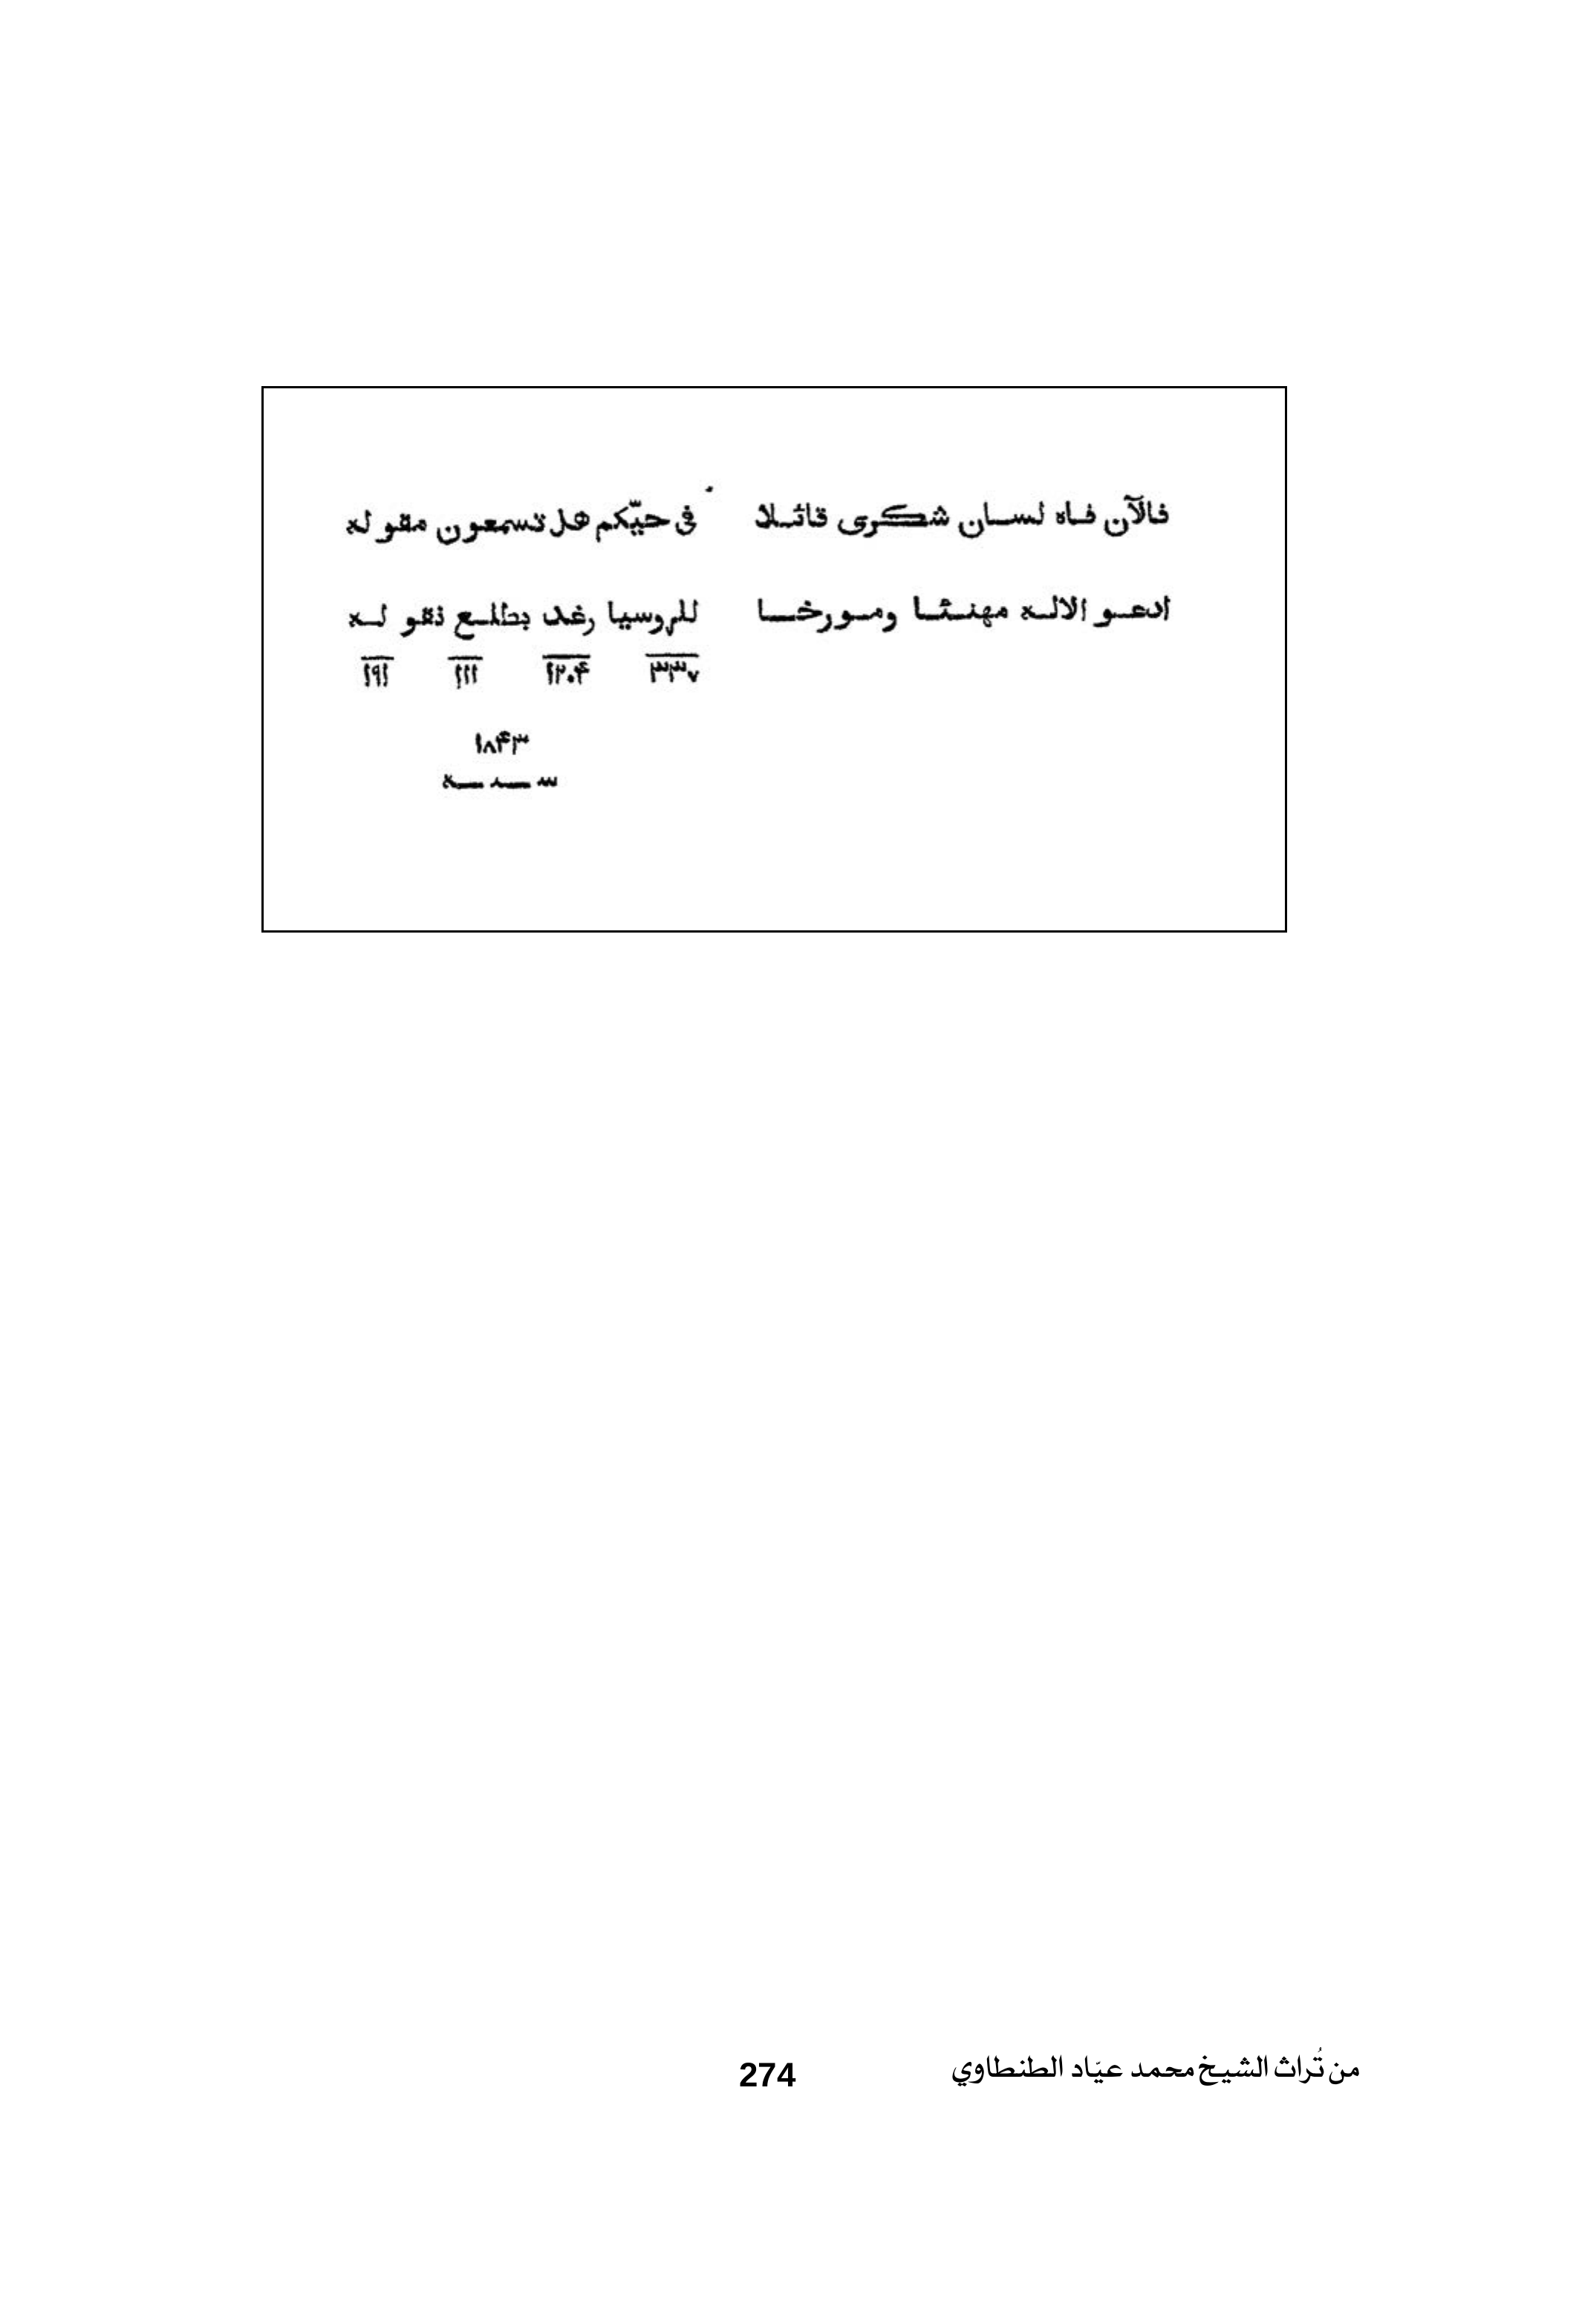 فالآن فاه لسان شكرى قائلا فى حيّكم هل تسمعون مقوله
ادعو الاله مهنئا ومورخا للروسيا رغد بطلع نقوله
٣٣٧ ١٢٠۴ ١١١ ١٩١
١٨۴٣
سنه
من تُراث الشيخ محمد عيّاد الطنطاوي 274